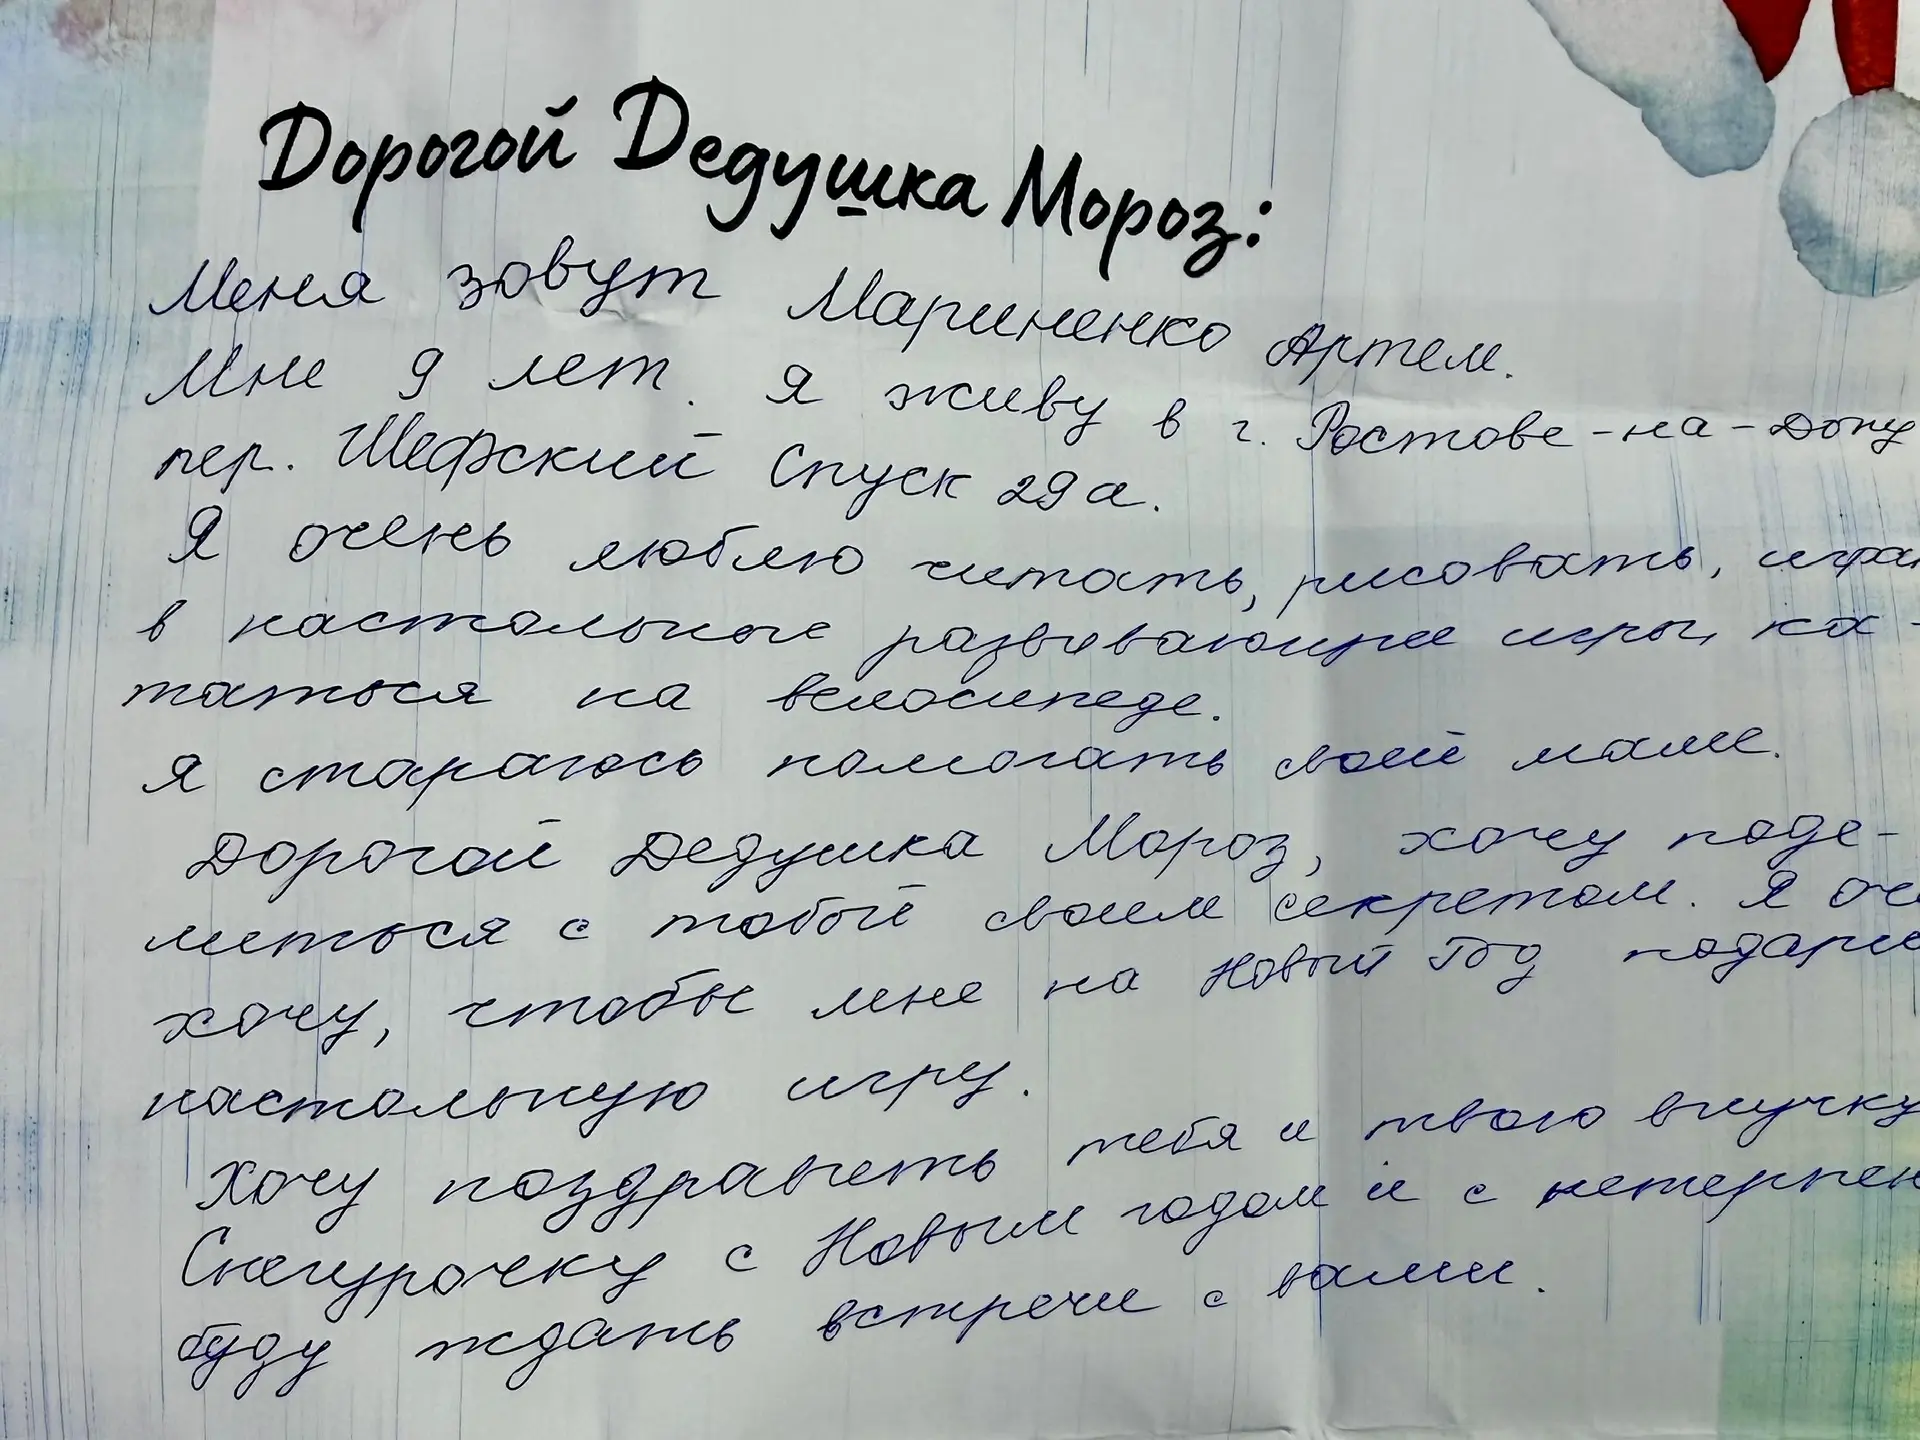 Дорогой Дедушка Мороз:
Меня зовут Мариненко Артем.
Мне 9 лет. Я живу в г. Ростове-на-Дону
пер. Шефский Спуск 29а.
Я очень люблю читать, рисовать, игра
в настольные развивающие игры, ка-
таться на велосипеде.
Я стараюсь помогать своей маме.
Дорогой Дедушка Мороз, хочу поде-
литься с тобой своим секретом. Я оче
хочу, чтобы мне на Новый Год подари
настольную игру.
Хочу поздравить тебя и твою внучку
Снегурочку с Новым годом и с нетерпен
буду ждать встречи с вами.